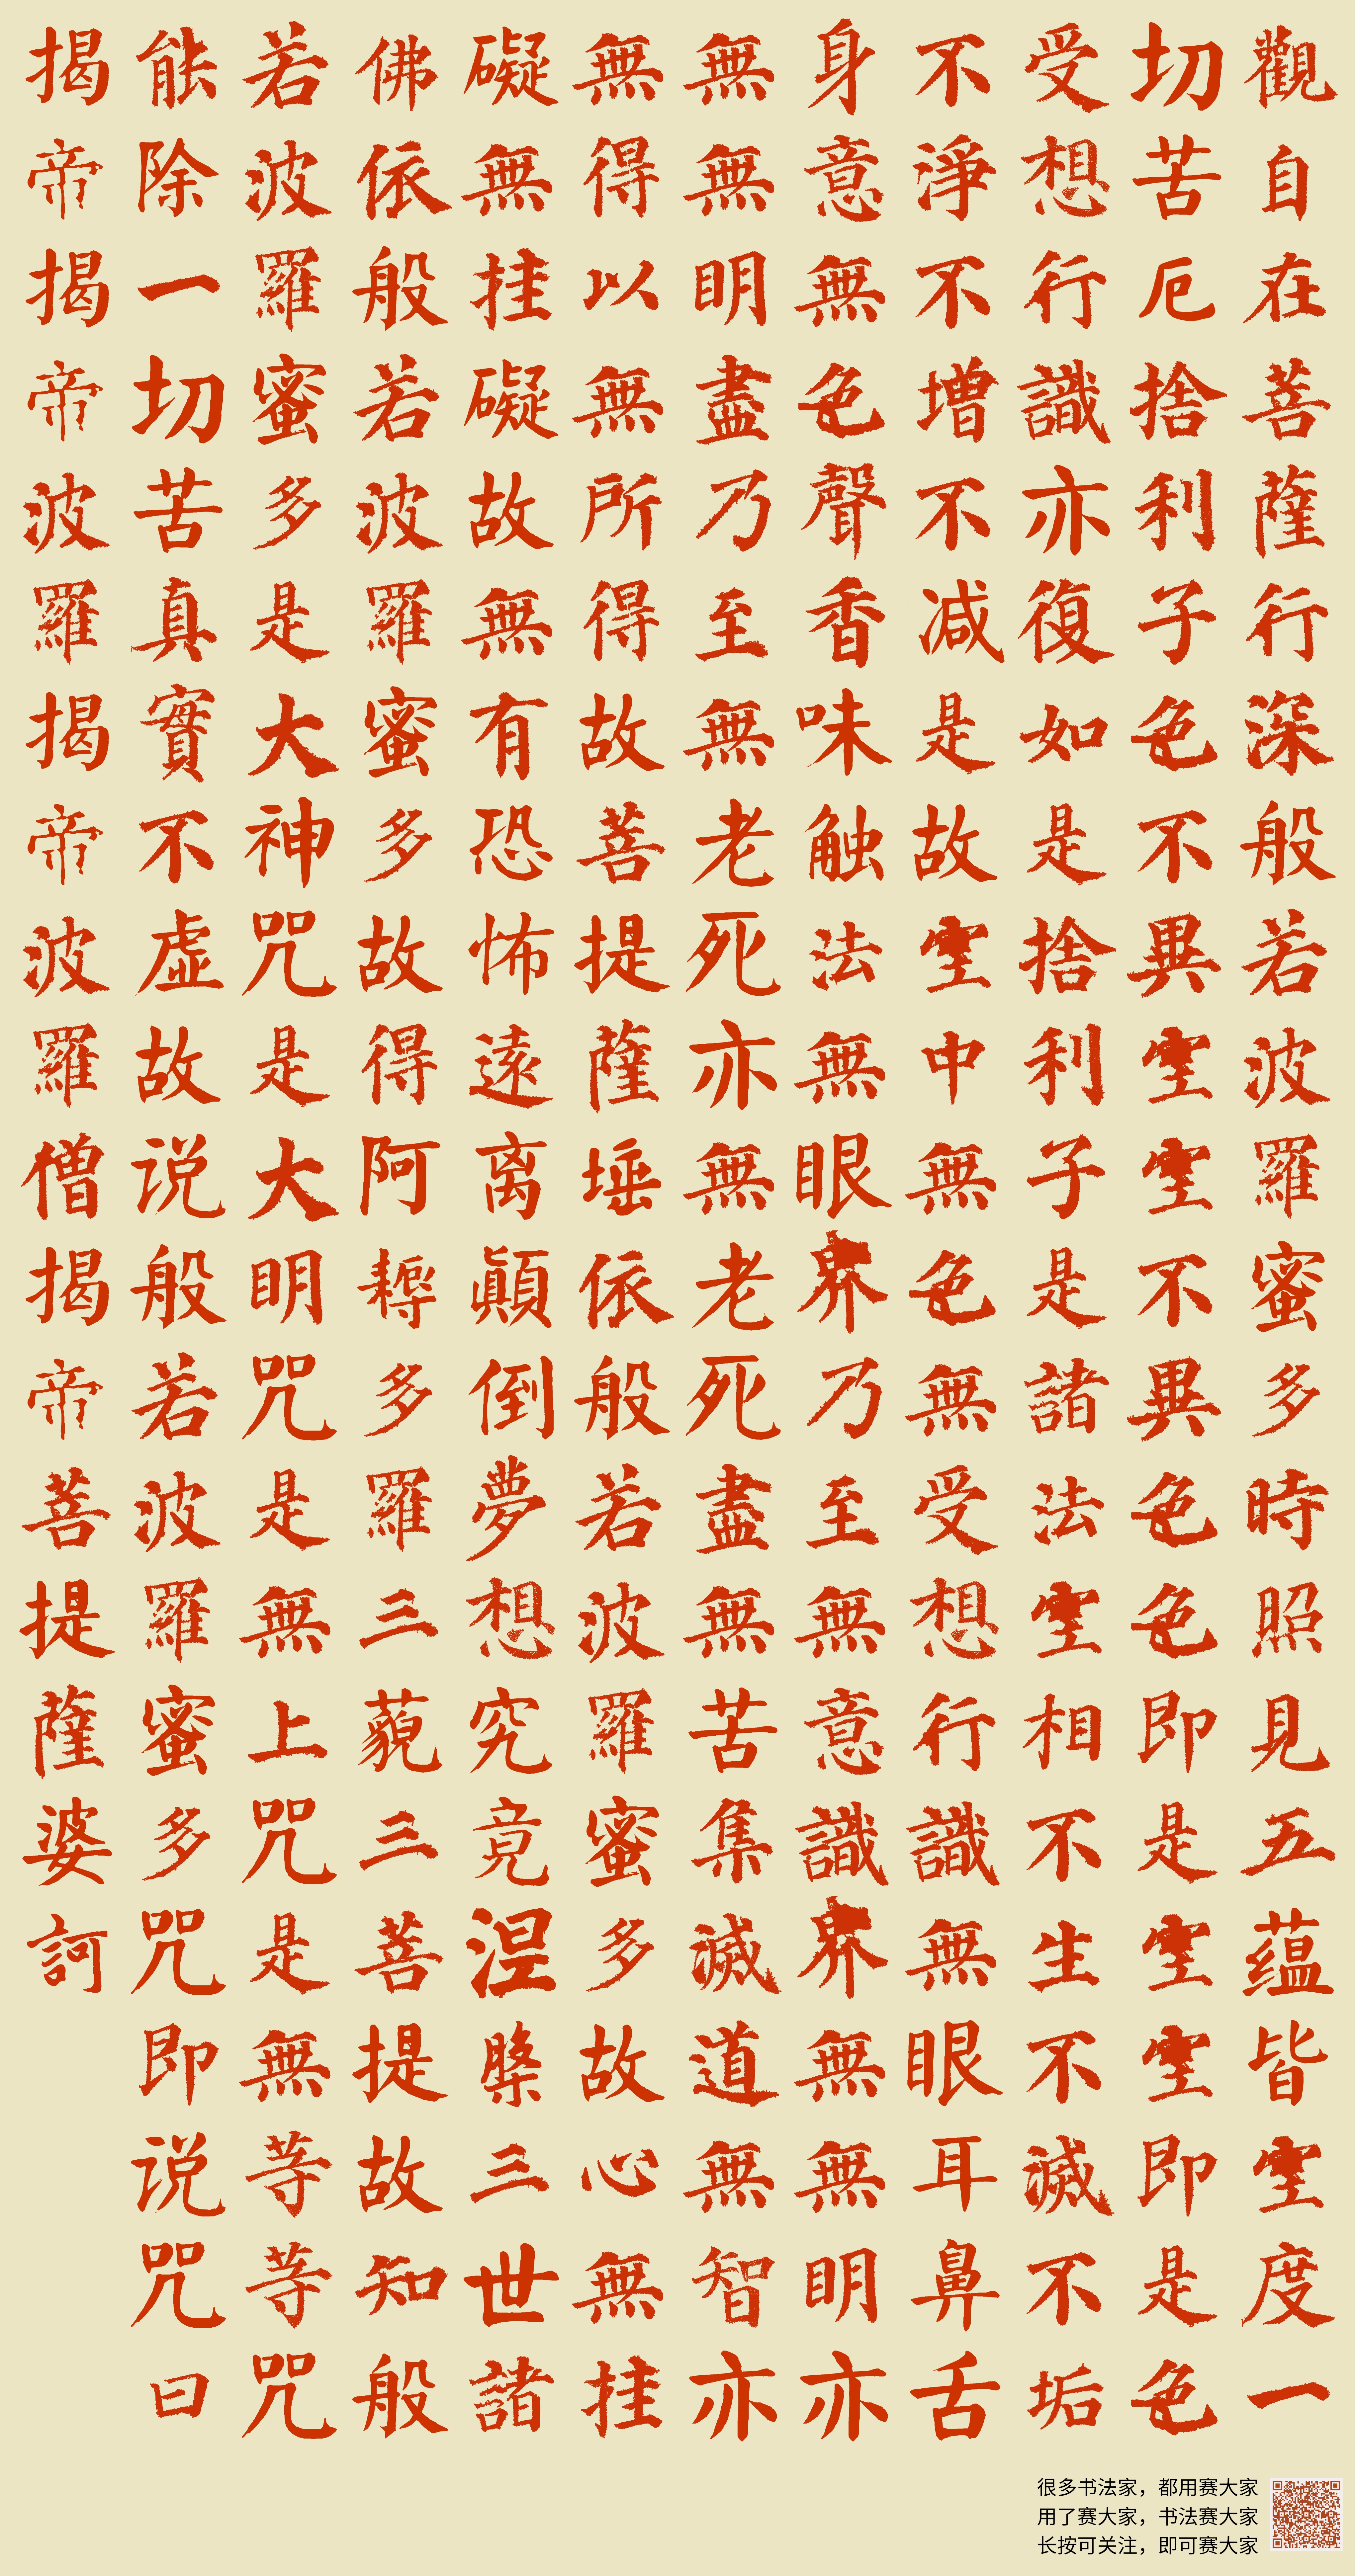 觀自在菩薩行深般若波羅蜜多時照見五蕴皆空度一
切苦厄捨利子色不異空空不異色色即是空空即是色
受想行識亦復如是捨利子是諸法空相不生不滅不垢
不淨不增不减是故空中無色無受想行識無眼耳鼻舌
身意無色聲香味触法無眼界乃至無意識界無無明亦
無無明盡乃至無老死亦無老死盡無苦集滅道無智亦
無得以無所得故菩提薩埵依般若波羅蜜多故心無挂
礙無挂礙故無有恐怖遠离顛倒夢想究竟涅槃三世諸
佛依般若波羅蜜多故得阿耨多羅三藐三菩提故知般
若波羅蜜多是大神咒是大明咒是無上咒是無等等咒
能除一切苦真實不虚故说般若波羅蜜多咒即说咒曰
揭帝揭帝波羅揭帝波羅僧揭帝菩提薩婆訶
很多书法家，都用赛大家
用了赛大家，书法赛大家
长按可关注，即可赛大家